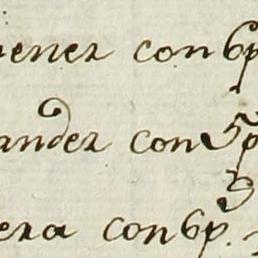 venez con 6p
andez con 5p
era con 6p.